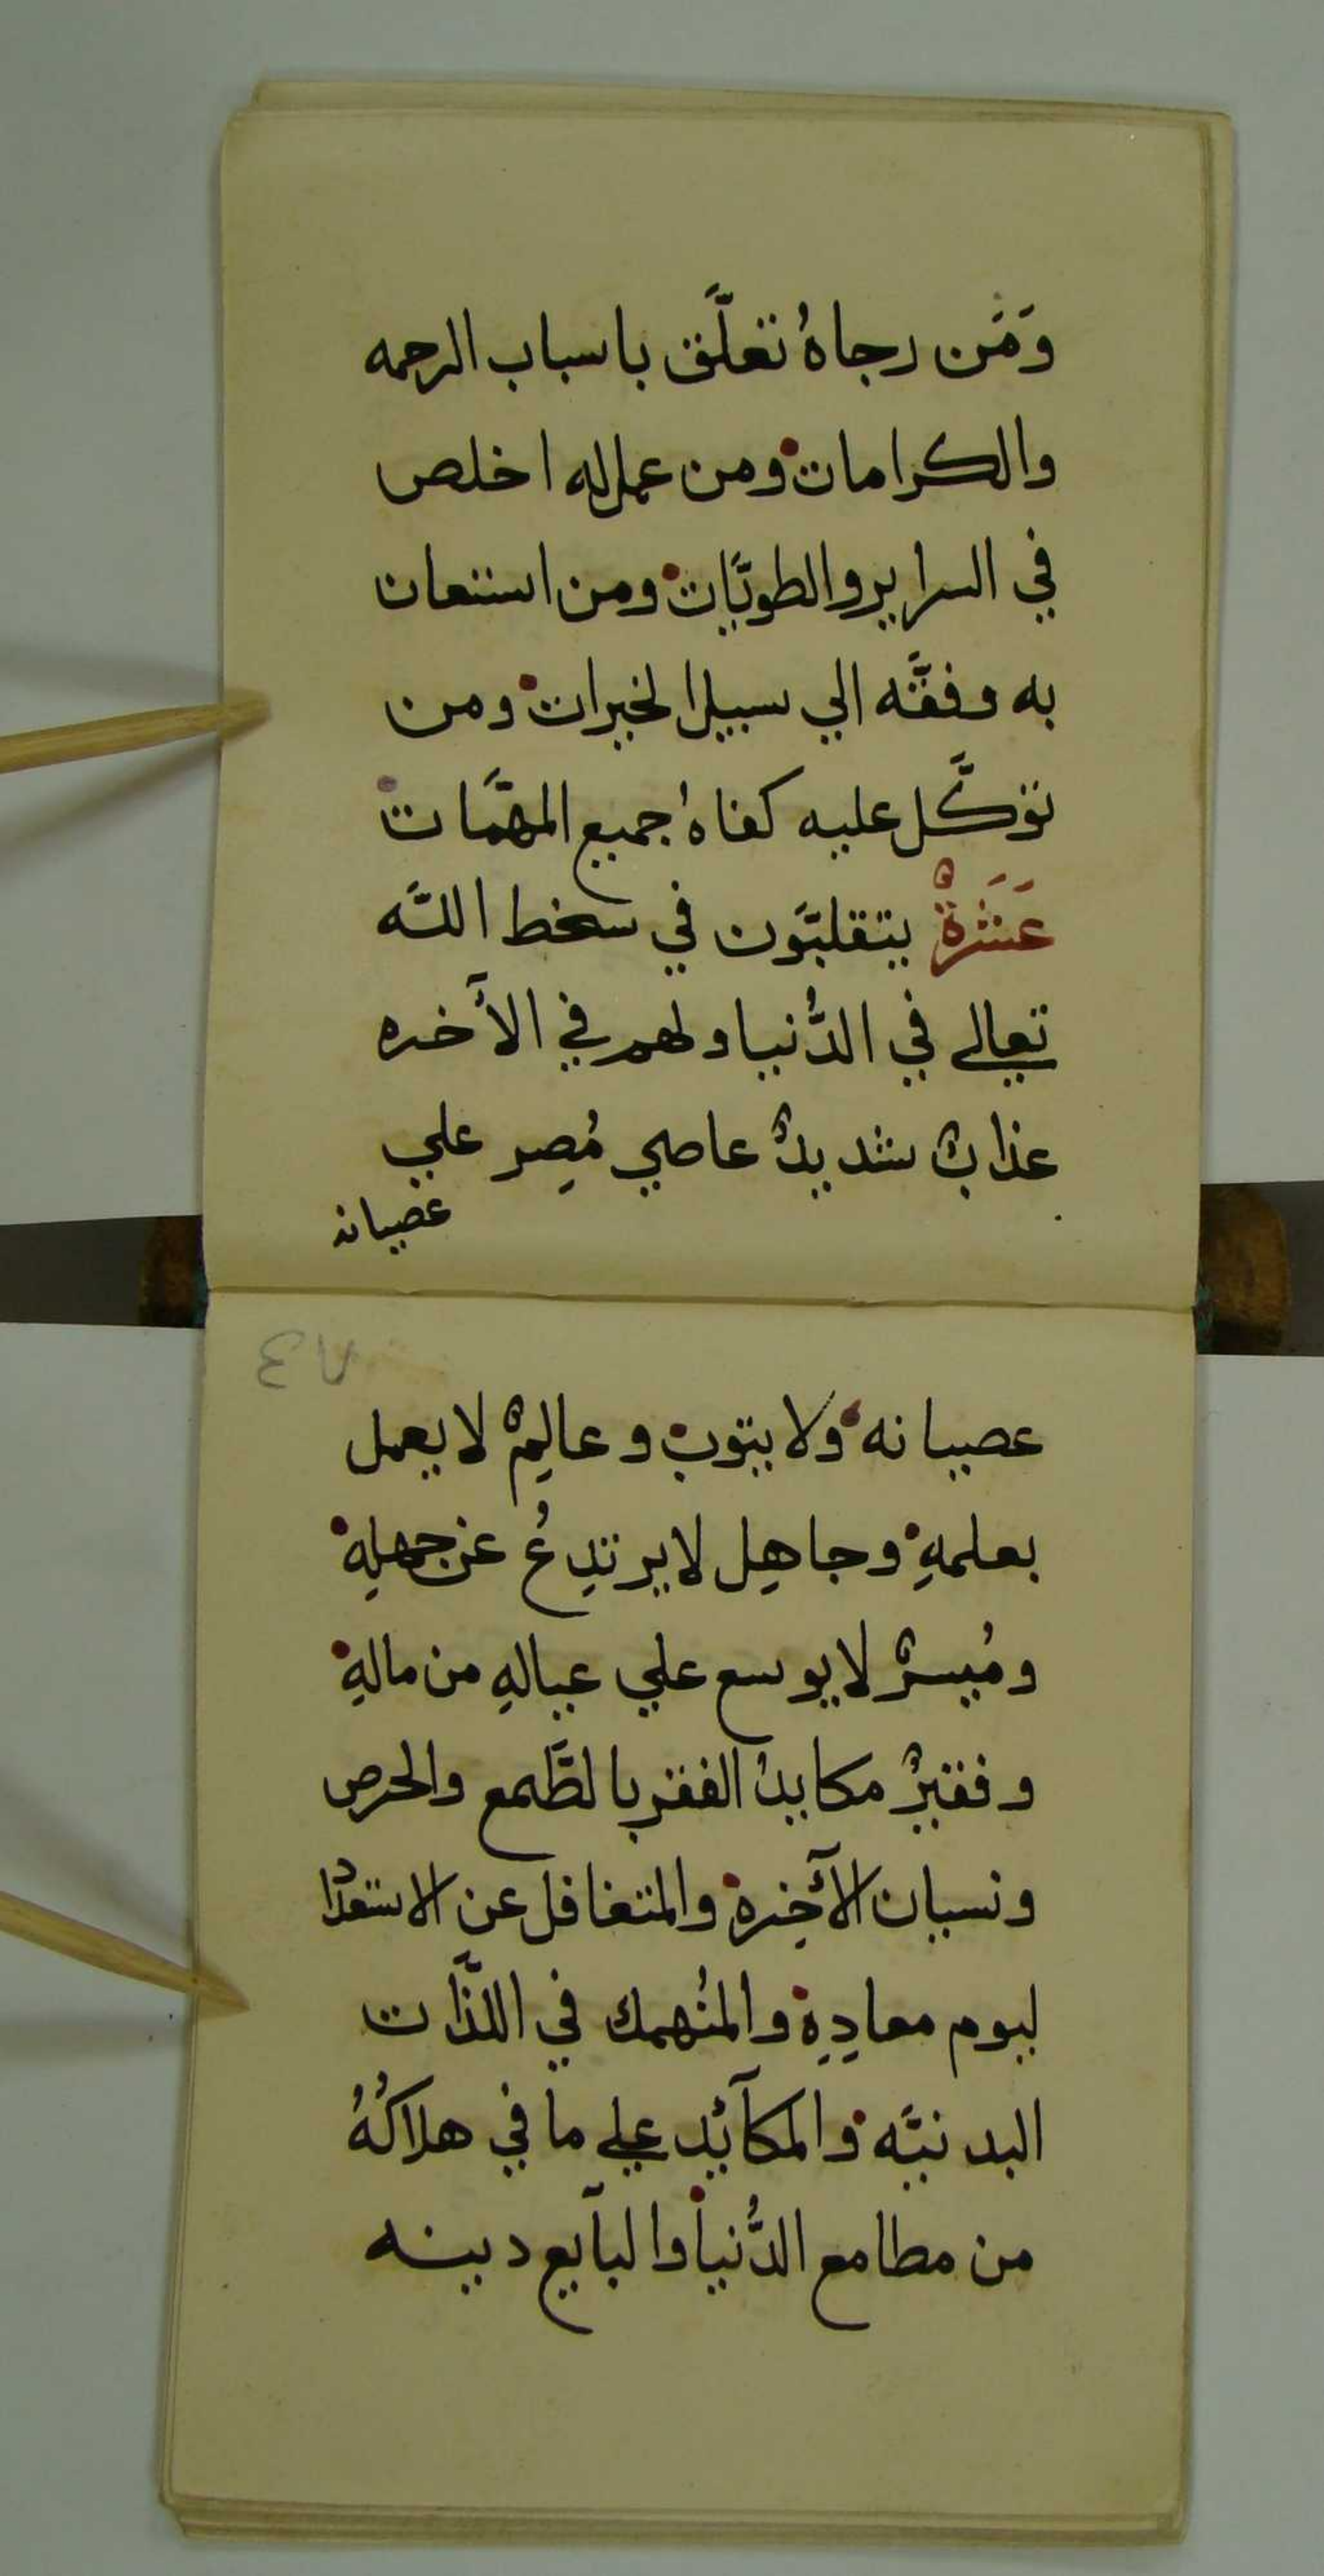 وَمَن رجاهُ تعلَّق باسباب الرحمه
والكرامات ومن عمل له اخلص
في السراير والطويَّات ومن استعان
به وفقَّه الي سبيل الخيرات ومن
توكَّل عليه كفاهُ جميع المهمَّات
عَشَرةٌ يتقلبَّون في سخط اللَّه
تعالي في الدُّنيا ولهم في الآخره
عذابٌ شديدٌ عاصي مُصِر علي
عصيانه
عصيانه ولا يتوب وعالِمٌ لا يعمل
بعلمهِ وجاهِل لا يرتدِعُ عن جهلِهِ
ومُيسرٌ لا يوسع علي عيالهِ من مالهِ
وفقيرٌ مكابدُ الفقر بالطَّمع والحرص
ونسيان الآخِرة والمتغافل عن الاستعداد
ليوم معادِهِ والمنُهمك في اللذَّات
البدنيَّه والمكآئد علي ما في هلاكُهُ
من مطامع الدُّنيا والبآيع دينه